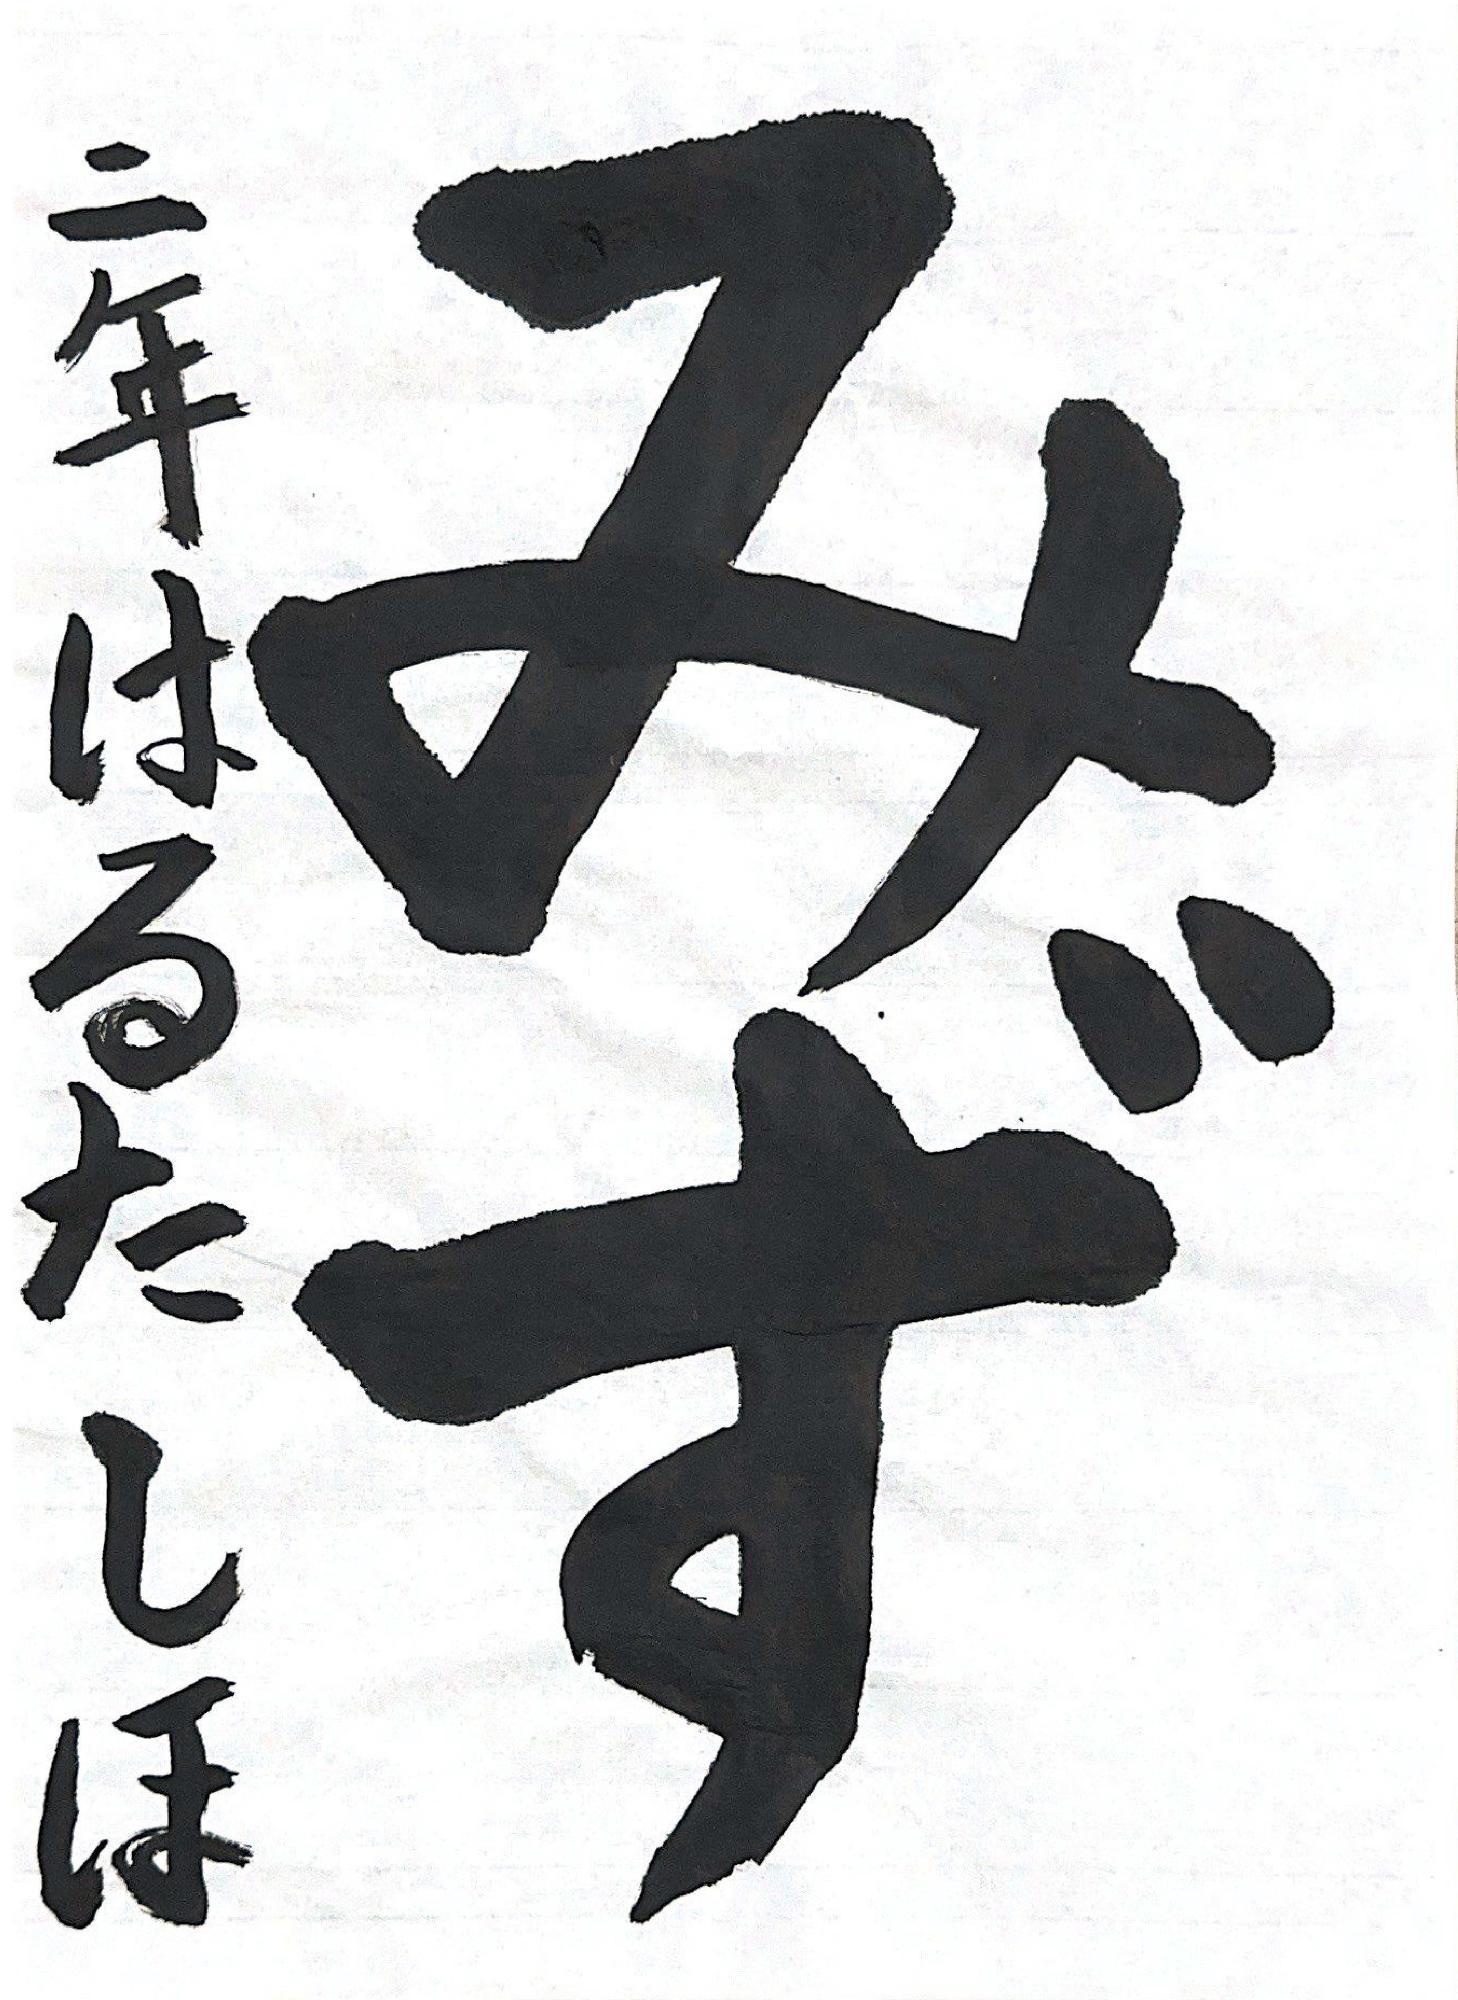 みず
二年はるた しほ